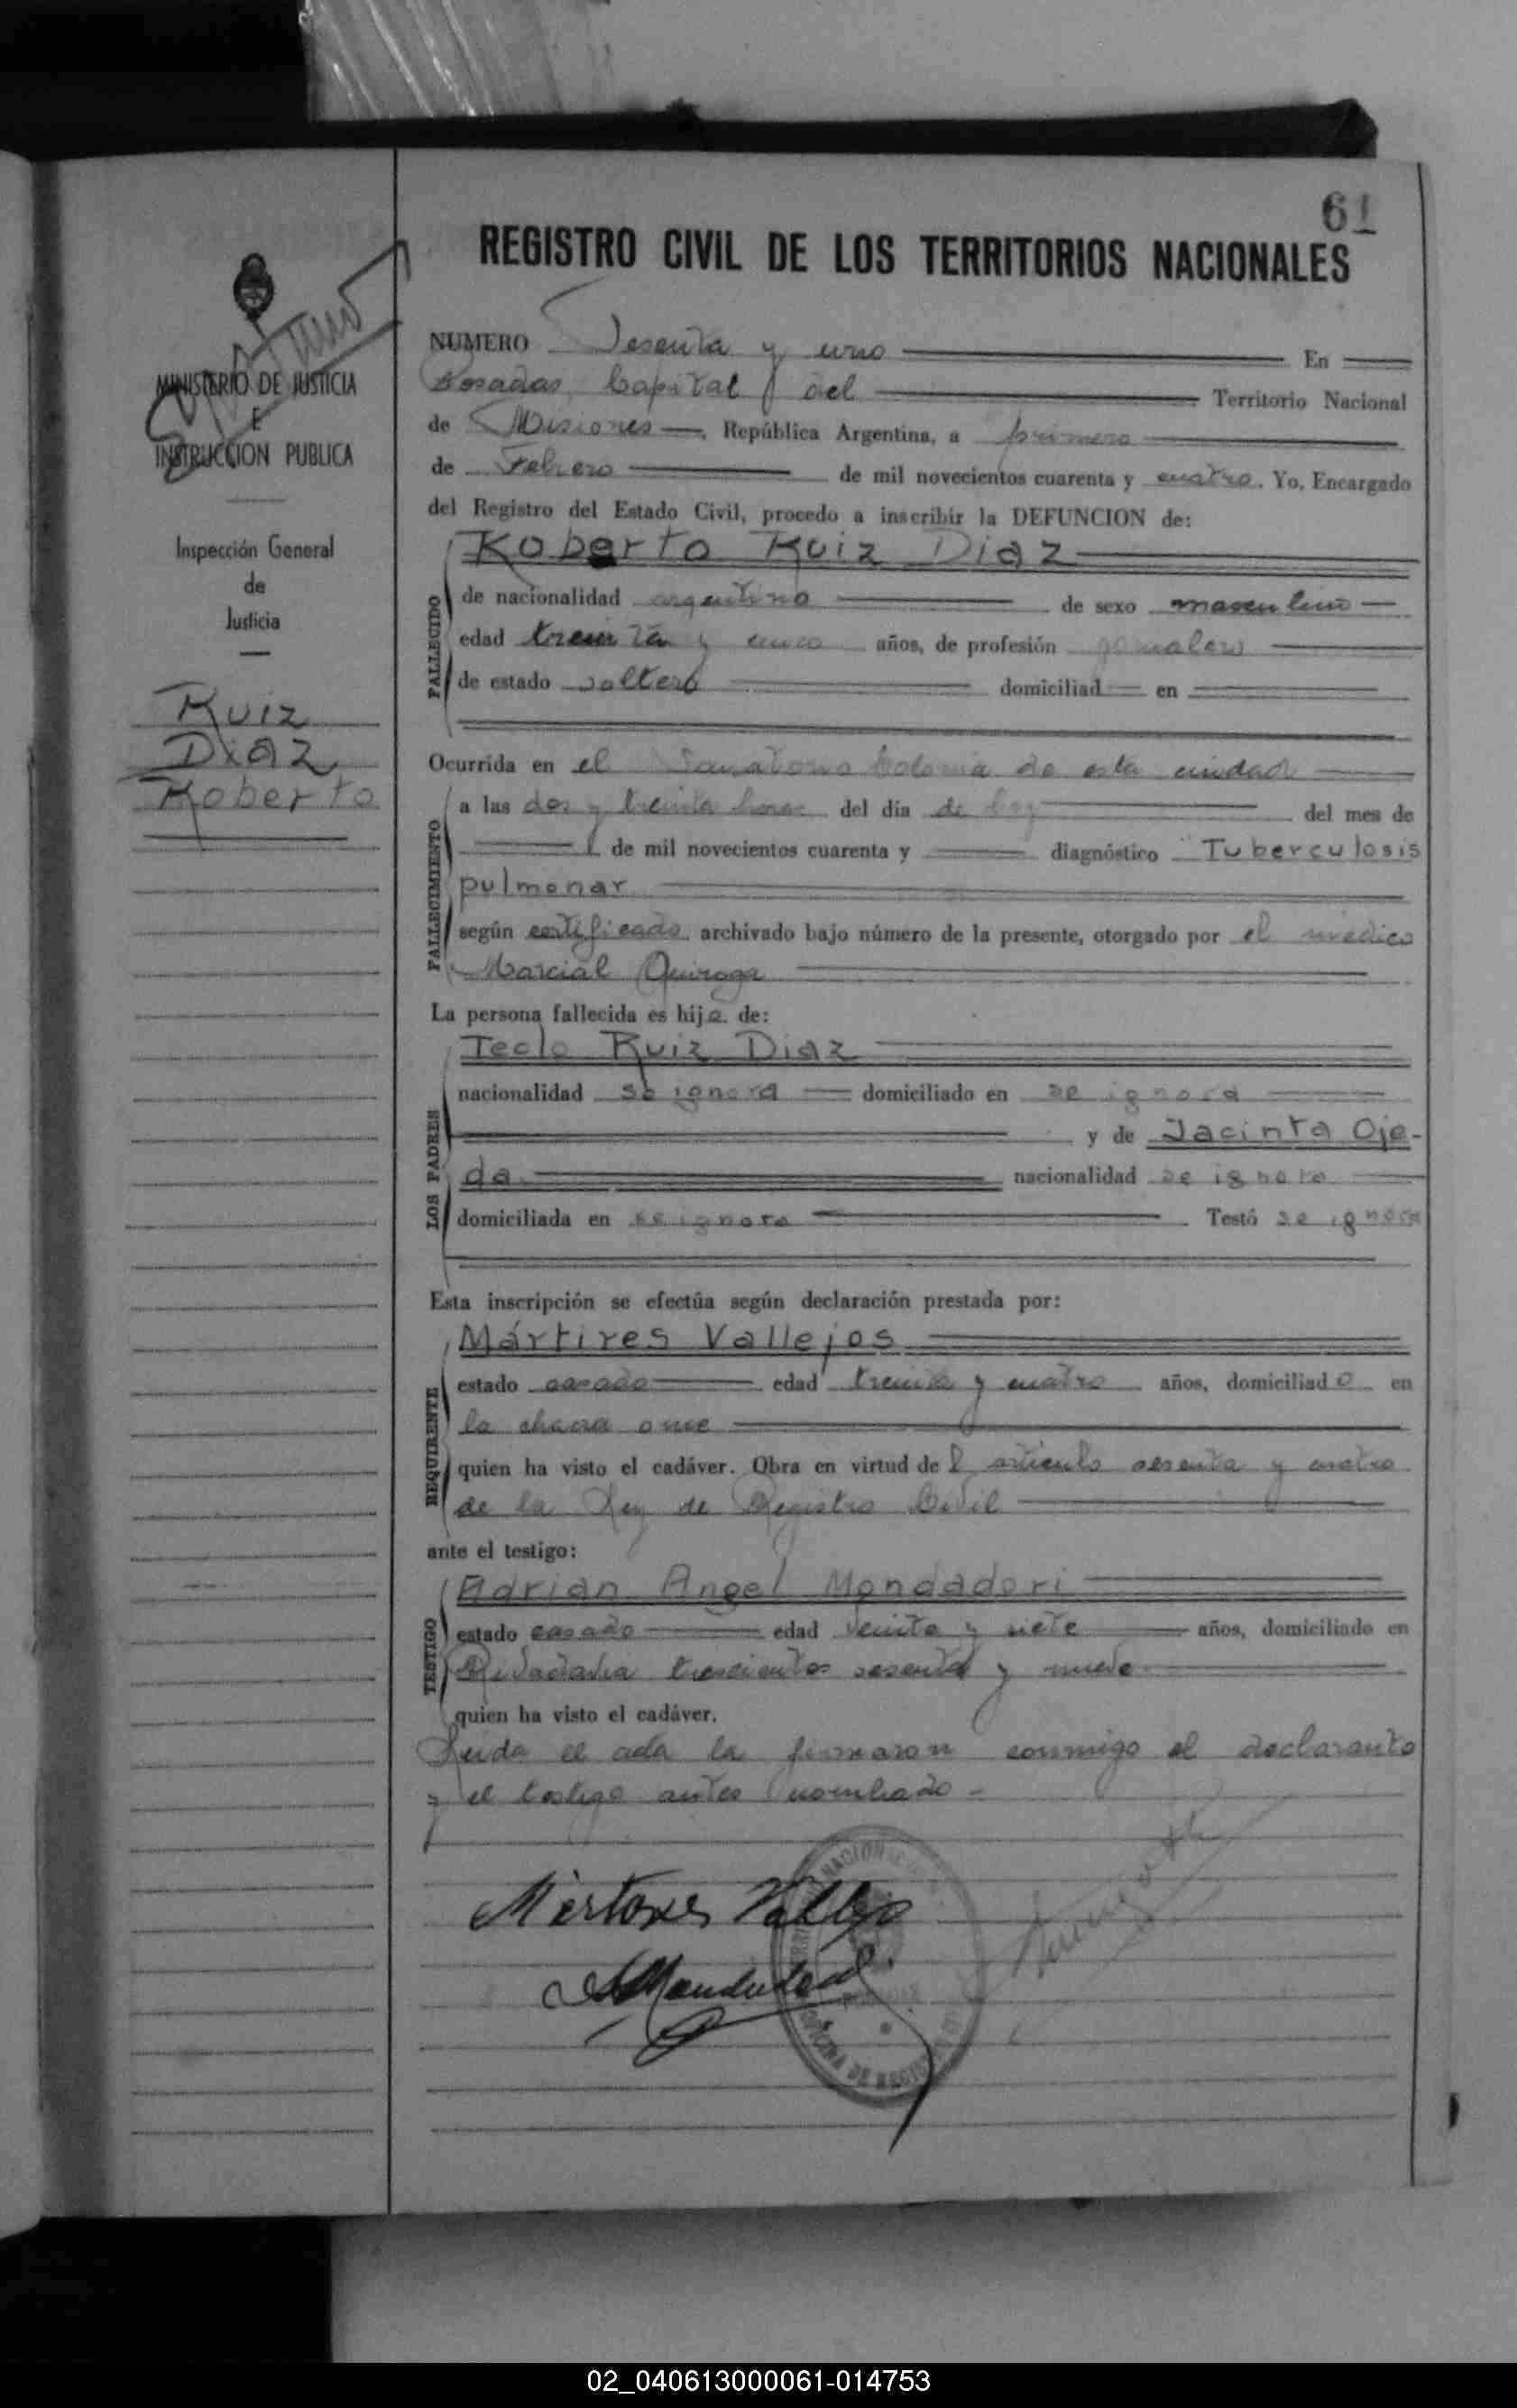 61
REGISTRO CIVIL DE LOS TERRITORIOS NACIONALES
MINISTERIO DE JUSTICIA
E
INSTRUCCION PUBLICA
Inspección General
de
Justicia
Ruiz
Diaz
Roberto
NUMERO Sesenta y uno En
Posadas, Capital del Territorio Nacional
de Misiones, República Argentina, a primero
de Febrero de mil novecientos cuarenta y cuatro. Yo, Encargado
del Registro del Estado Civil, procedo a inscribir la DEFUNCION de:
Roberto Ruiz Diaz
FALLECIDO
de nacionalidad argentino de sexo masculino
edad treinta y cinco años, de profesión jornalero
de estado soltero domiciliad en
Ocurrida en el Sanatorio Colonia de esta ciudad
FALLECIMIENTO
a las dos y treinta horas del día de hoy del mes de
de mil novecientos cuarenta y diagnóstico Tuberculosis
pulmonar
según certificado archivado bajo número de la presente, otorgado por el médico
Marcial Quiroga
La persona fallecida es hijo de:
LOS PADRES
Teclo Ruiz Diaz
nacionalidad se ignora domiciliado en se ignora
y de Jacinta Oje-
da nacionalidad se ignora
domiciliada en se ignora Testó se ignora
Esta inscripción se efectúa según declaración prestada por:
REQUIRENTE
Mártires Vallejos
estado casado edad treinta y cuatro años, domiciliado en
la chacra once
quien ha visto el cadáver. Obra en virtud del artículo sesenta y cuatro
de la Ley de Registro Civil
ante el testigo:
TESTIGO
Adrian Angel Mondadori
estado casado edad veinte y siete años, domiciliado en
Rivadavia trescientos sesenta y nueve
quien ha visto el cadáver.
Leida el acta la firmaron conmigo el declarante
y el testigo antes nombrado -
02_040613000061-014753